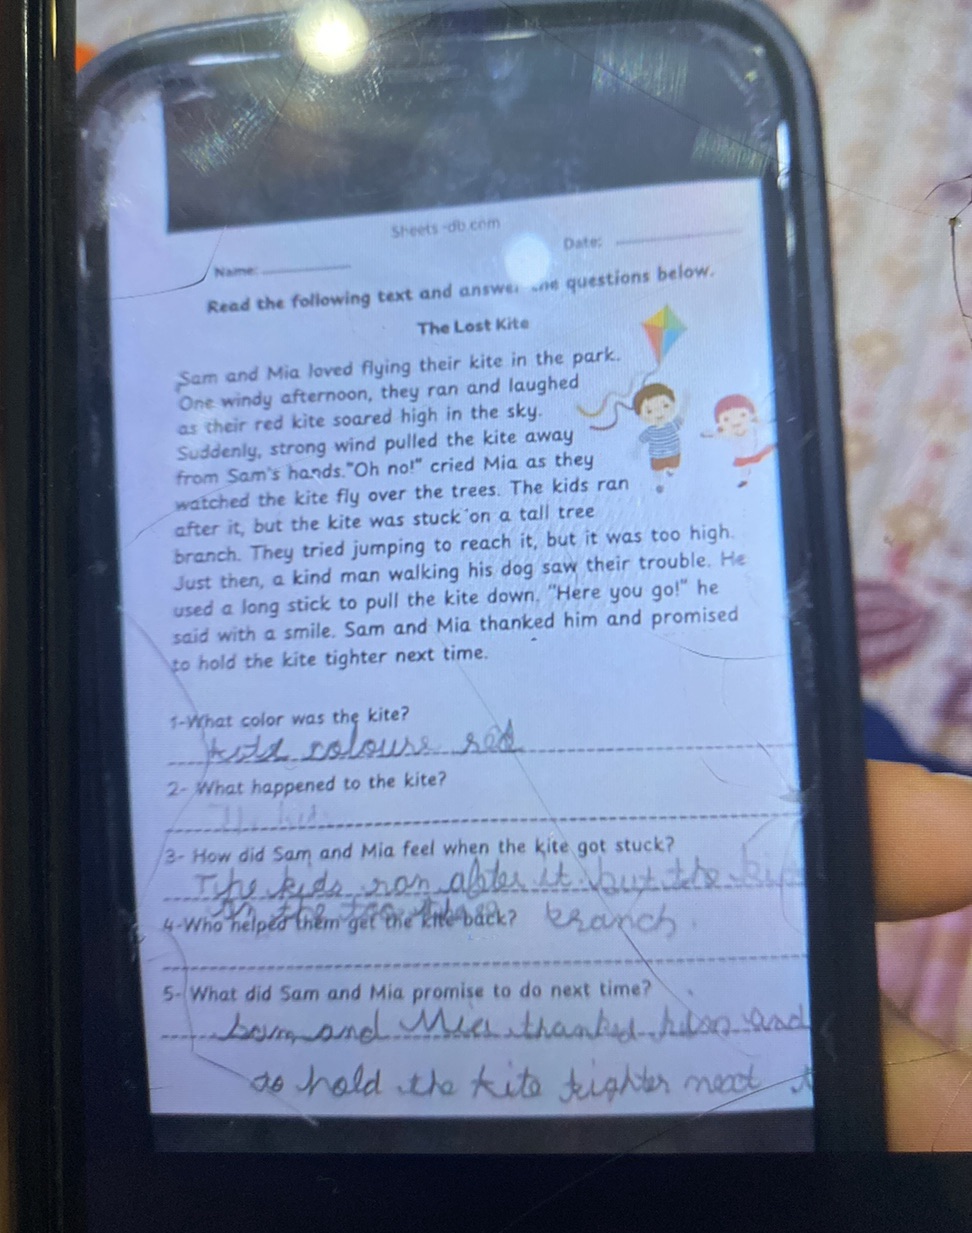 Sheets-db.com
Date:
Name:
Read the following text and answer the questions below.
The Lost Kite
Sam and Mia loved flying their kite in the park.
One windy afternoon, they ran and laughed
as their red kite soared high in the sky.
Suddenly, strong wind pulled the kite away
from Sam's hands."Oh no!" cried Mia as they
watched the kite fly over the trees. The kids ran
after it, but the kite was stuck on a tall tree
branch. They tried jumping to reach it, but it was too high.
Just then, a kind man walking his dog saw their trouble. He
used a long stick to pull the kite down. "Here you go!" he
said with a smile. Sam and Mia thanked him and promised
to hold the kite tighter next time.
1-What color was the kite?
colours red
2- What happened to the kite?
3- How did Sam and Mia feel when the kite got stuck?
The kids ran after it but the
4-Who helped them get the kite back? branch.
5- What did Sam and Mia promise to do next time?
and Mia thanked and
to hold the kite tighter next